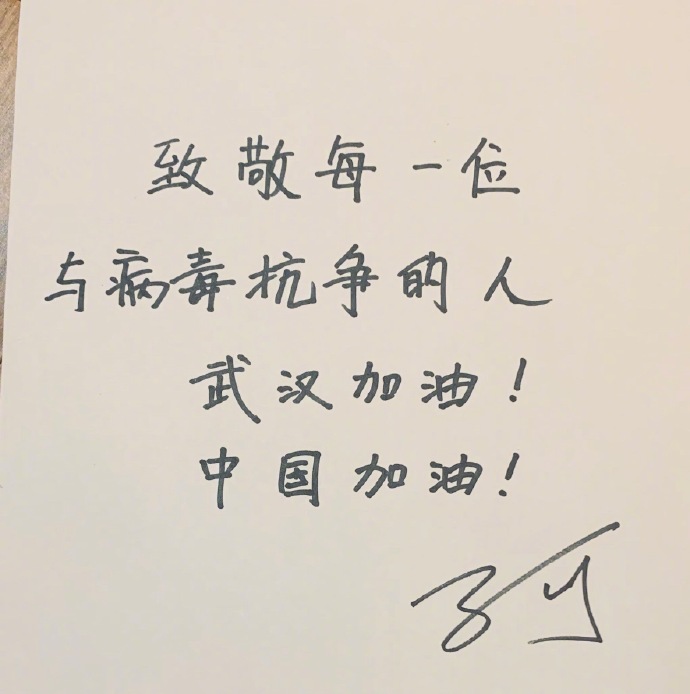 致敬每一位
与病毒抗争的人
武汉加油！
中国加油！